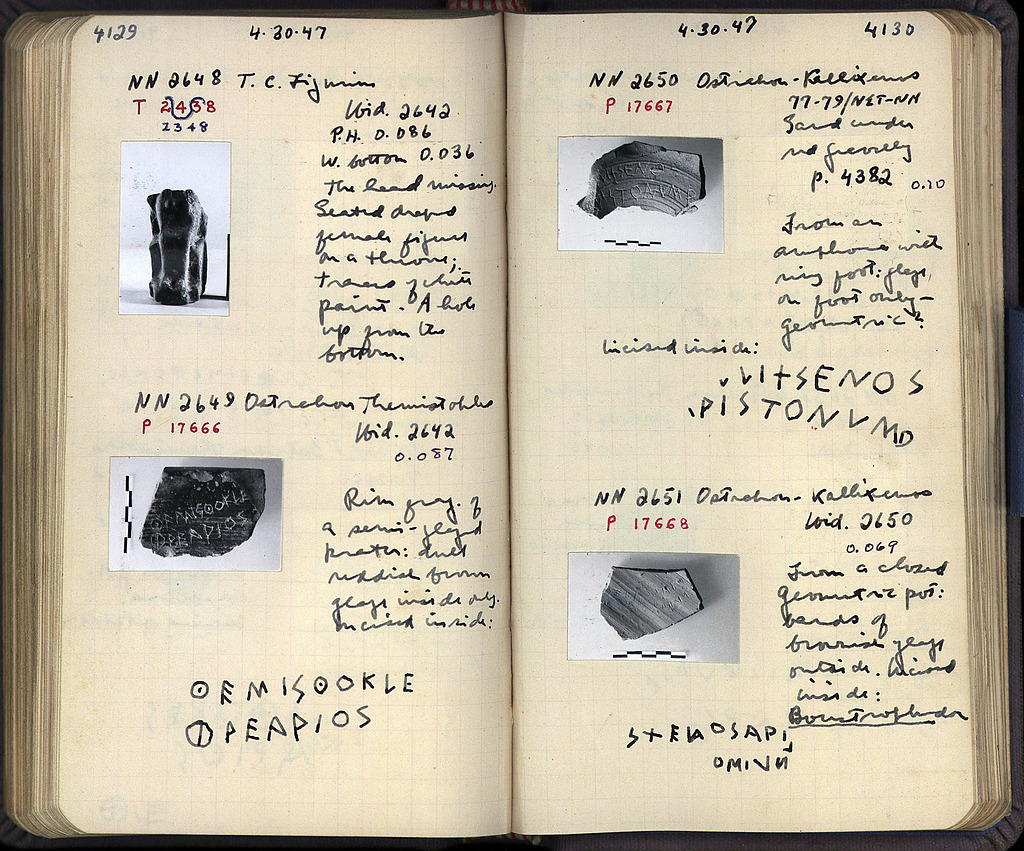 4129 4.30.47
NN 2648 T. C. Figurine
T 2438
2348
Ibid. 2642
P.H. 0.086
W. bottom 0.036
The head missing.
Seated draped
female figure
on a throne;
traces of white
paint. A hole
up from the
bottom.
NN 2649 Ostrakon Themistokles
P 17666
Ibid. 2642
0.087
Rim frag. of
a semi-glazed
krater: dull
reddish brown
glaze inside only.
Incised inside:
ΘEMISΘOKLE
ΦPEAPIOS
4.30.47 4130
NN 2650 Ostrakon - Kallixenos
P 17667
77-79/ΝΕΤ-ΝΝ
Sand under
rd gravelly
p. 4382 0.20
From an
amphora with
ring foot: glaze
on foot only—
geometric?
Incised inside:
ΙΧSENOS
ΡISTONVM
NN 2651 Ostrakon - Kallixenos
P 17668
Ibid. 2650
0.069
From a closed
geometric pot:
bands of
brownish glaze
outside. Incised
inside:
Boustrophedon